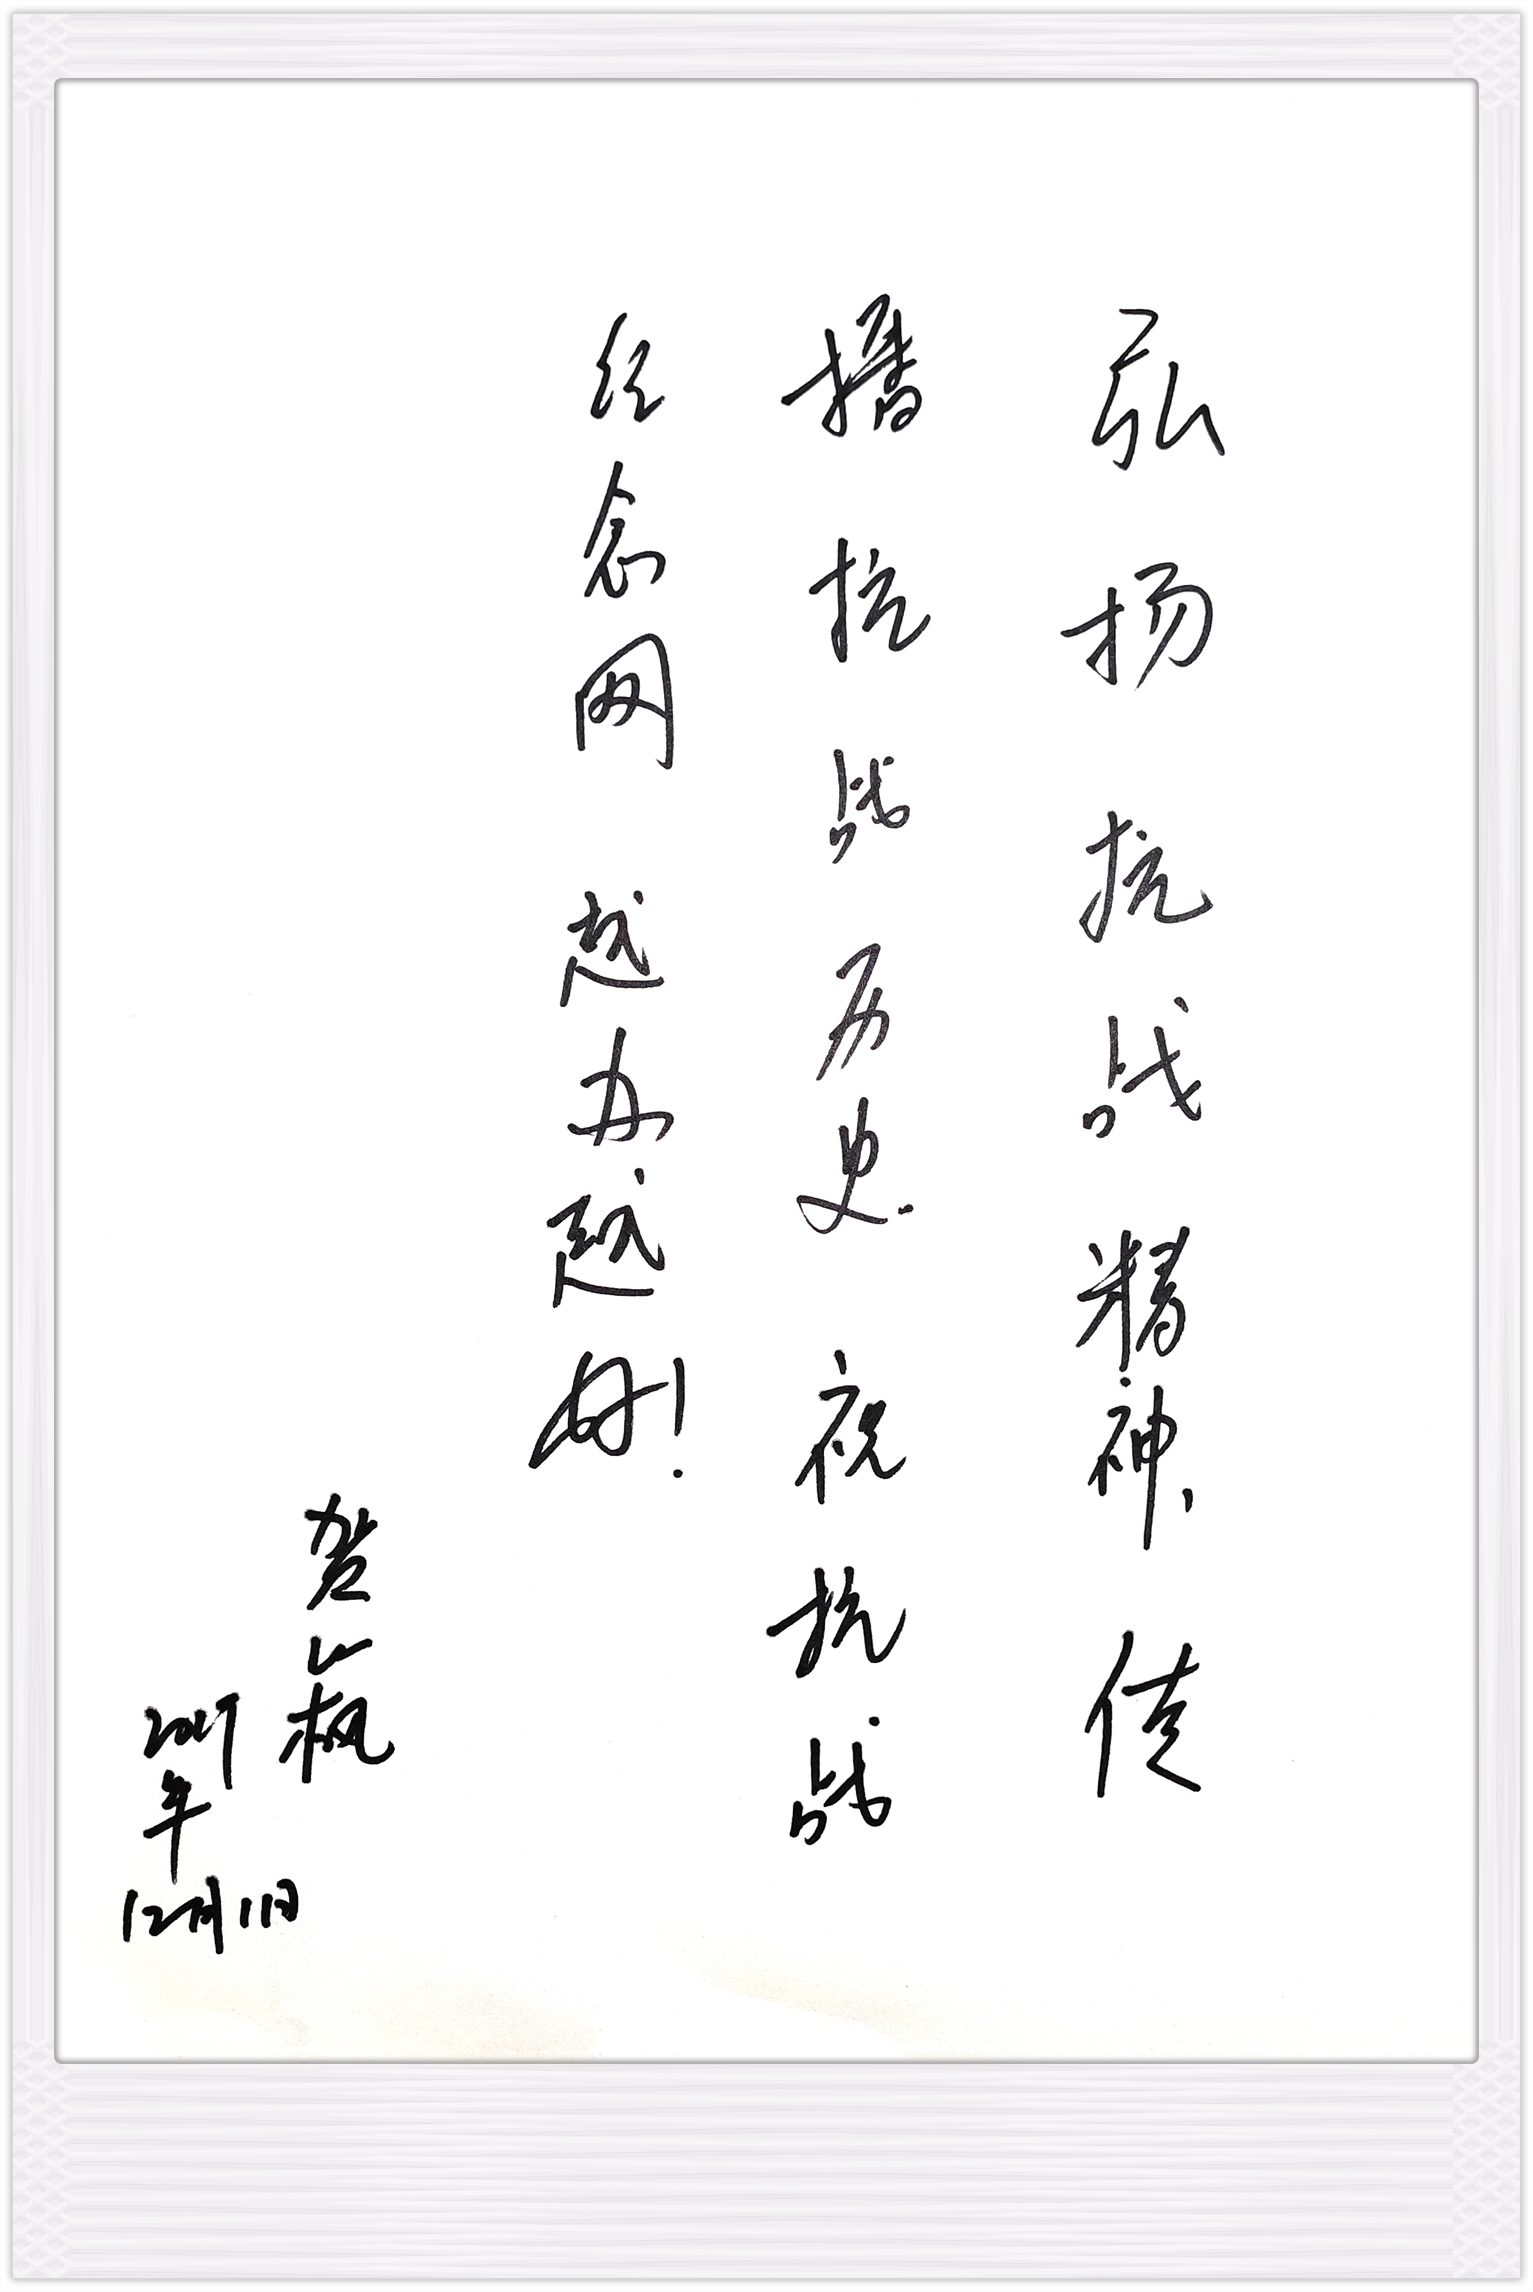 弘扬抗战精神、传
播抗战历史.祝抗战
纪念网越办越好！
贺一枫
2017
年
12月11日